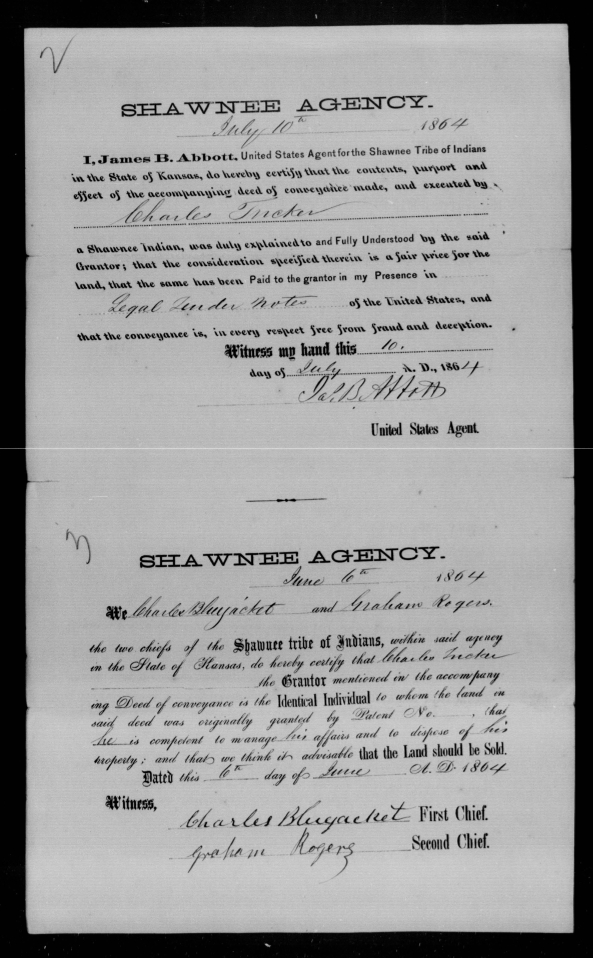 2
SHAWNEE AGENCY.
July 10th 1864
I, James B. Abbott, United States Agent for the Shawnee Tribe of Indians
in the State of Kansas, do hereby certify that the contents, purport and
effect of the accompanying deed of conveyance made, and executed by
Charles Tucker
a Shawnee Indian, was duly explained to and Fully Understood by the said
Grantor; that the consideration specified therein is a fair price for the
land, that the same has been Paid to the grantor in my Presence in
Legal Tender Notes of the United States, and
that the conveyance is, in every respect free from fraud and deception.
Witness my hand this 10.
day of July A. D., 1864
Jas. B. Abbott
United States Agent.
3
SHAWNEE AGENCY.
June 6th 1864
We Charles Bluejacket and Graham Rogers.
the two chiefs of the Shawnee tribe of Indians, within said agency
in the State of Kansas, do hereby certify that Charles Tucker
the Grantor mentioned in the accompany
ing Deed of conveyance is the Identical Individual to whom the land in
said deed was originally granted by Patent No. , that
he is competent to manage his affairs and to dispose of his
property; and that we think it advisable that the Land should be Sold.
Dated this 6th day of June A. D. 1864
Witness,
Charles Bluejacket First Chief.
Graham Rogers Second Chief.